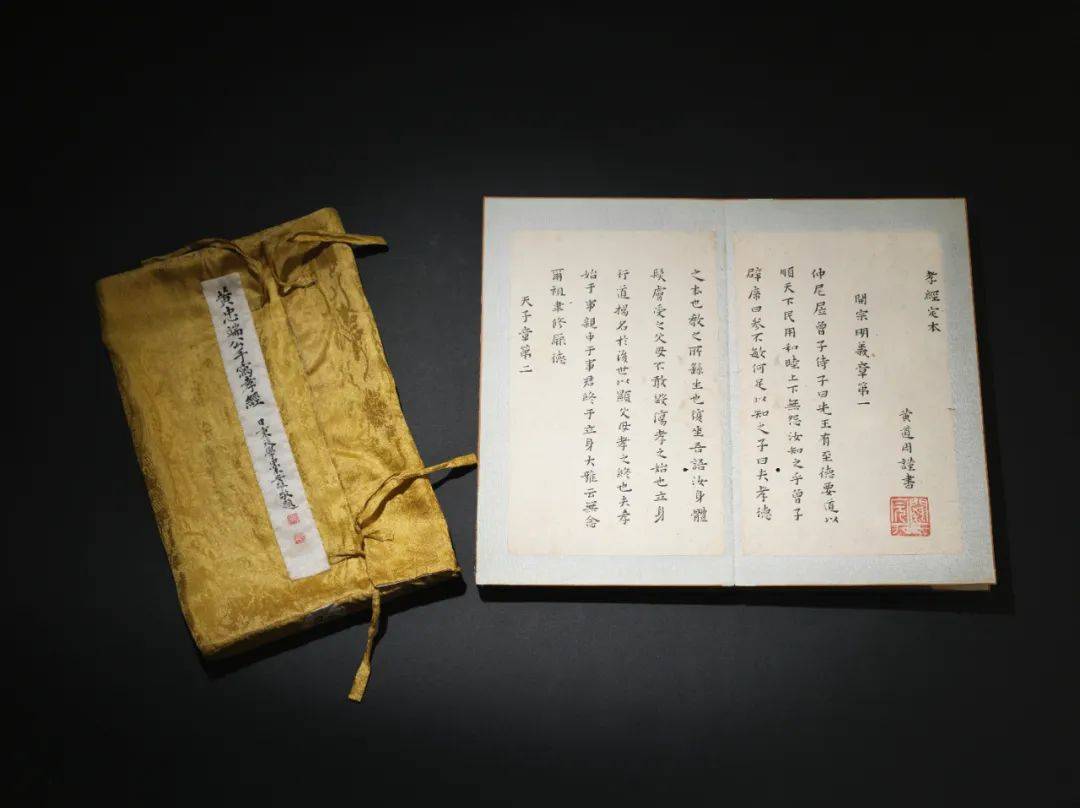 黃忠端公手寫孝經
孝經定本
黃道周謹書
開宗明義章第一
仲尼居曾子侍子曰先王有至德要道以
順天下民用和睦上下無怨汝知之乎曾子
辟席曰參不敏何足以知之子曰夫孝德
之本也教之所繇生也復坐吾語汝身體
髮膚受之父母不敢毀傷孝之始也立身
行道揚名於後世以顯父母孝之終也夫孝
始于事親中于事君終于立身大雅云無念
爾祖聿修厥德
天子章第二